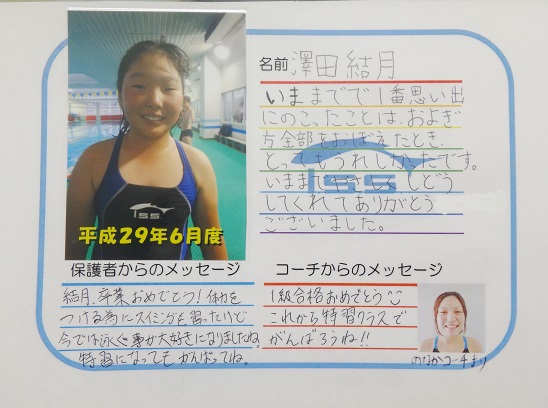 名前 澤田 結月
いままでで1番思い出
にのこったことは、およぎ
方全部をおぼえたとき、
とってもうれしかったです。
いままでやさしくしどう
してくれてありがとう
ございました。
ISS
ISS
平成29年6月度
保護者からのメッセージ
結月、卒業おめでとう!体力を
つける為にスイミングを習ったけど
今では泳ぐ事が大好きになりましたね。
特習になってもがんばってね。
コーチからのメッセージ
1級合格おめでとう
これから特習クラスで
がんばろうね!!
のなかコーチより